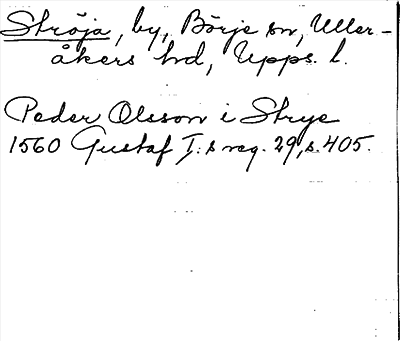 Ströja, by, Börje sn, Uller-
åkers hd, Upps. l.
Peder Olsson i Strye
1560 Gustaf I:s reg. 29, s. 405.